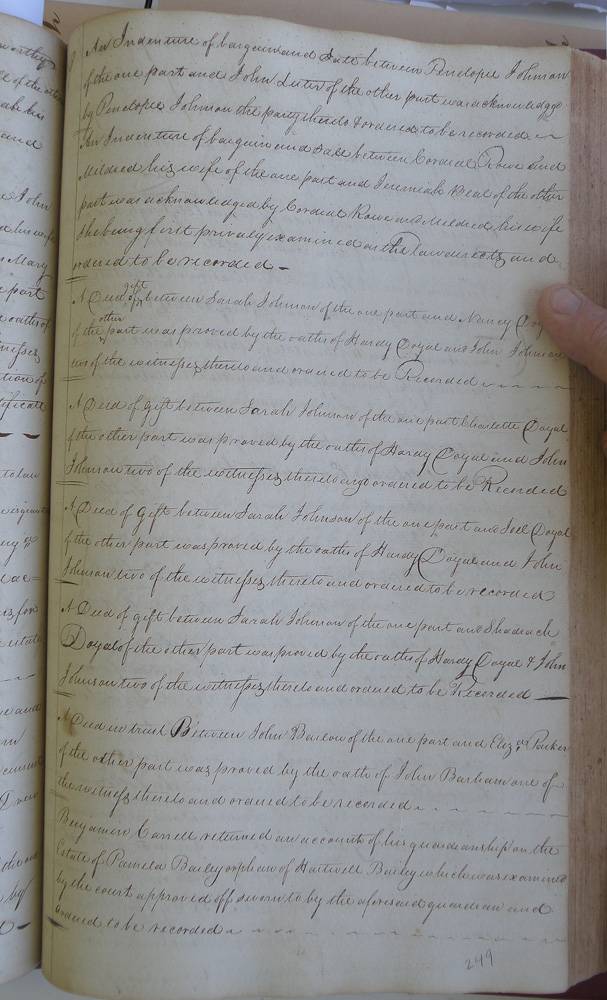 An Indenture of bargain and Sale between Penelope Johnson
of the one part and John Luter of the other part was acknowledged
by Penelope Johnson the party thereto & ordered to be recorded
An Indenture of bargain and Sale between Cordial Rowe and
Mildred his wife of the one part and Jeremiah Beal of the other
part was acknowledged by Cordial Rowe and Mildred his wife
she being first privily examined as the law directs and
ordered to be recorded -
A Deed of gift between Sarah Johnson of the one part and Nancy
of the other part was proved by the oaths of Hardy Doyal and John Johnson
two of the witnesses thereto and ordered to be Recorded
A Deed of Gift between Sarah Johnson of the one part Charlotte Doyal
of the other part was proved by the oaths of Hardy Doyal and John
Johnson two of the witnesses thereto and ordered to be Recorded
A Deed of Gift between Sarah Johnson of the one part and Joel Doyal
of the other part was proved by the oaths of Hardy Doyal and John
Johnson two of the witnesses thereto and ordered to be recorded
A Deed of gift between Sarah Johnson of the one part and Shadrach
Doyal of the other part was proved by the oaths of Hardy Doyal & John
Johnson two of the witnesses thereto and ordered to be Recorded
A Deed in trust Between John Barlow of the one part and Eliz.a Parker
of the other part was proved by the oath of John Barham one of
the witness thereto and ordered to be recorded
Benjamin Carrell returned an account of his guardianship on the
Estate of Pamela Bailey orphan of Hartwell Bailey which was examined
by the court approved off sworn to by the aforesaid guardian and
ordered to be recorded
249